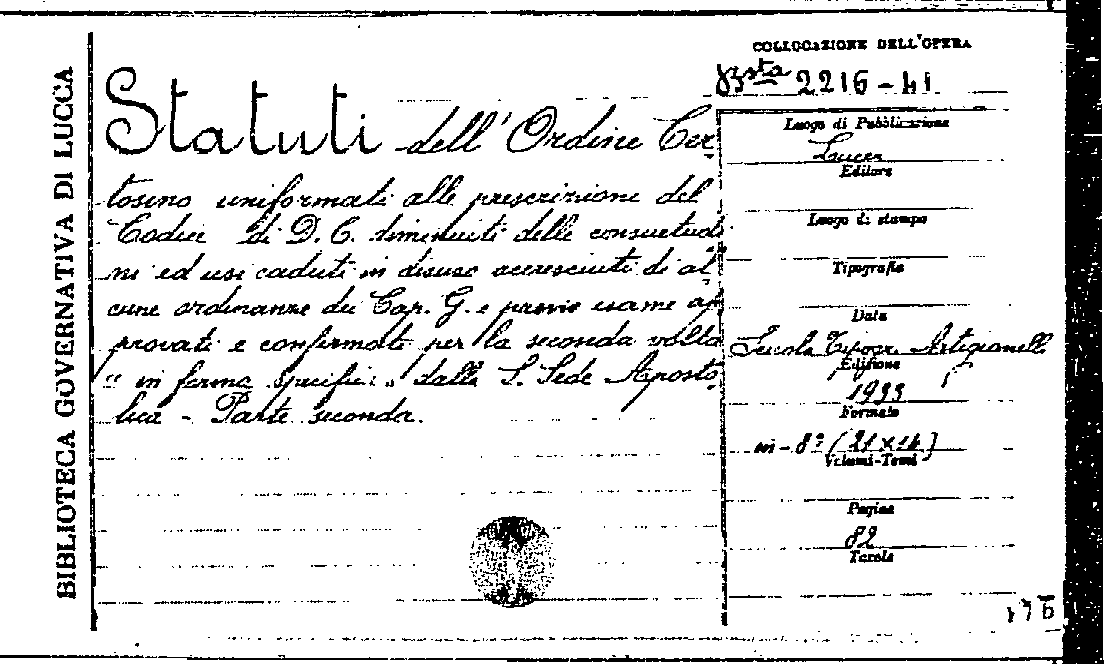 BIBLIOTECA GOVERNATIVA DI LUCCA
COLLOCAZIONE DELL'OPERA
Bsta 2216-41
Statuti dell'Ordine Cer
tosino uniformati alle prescrizione del
Codice di D. C. diminuiti delle consuetudi
ni ed usi caduti in disuso accresciuti di al
cune ordinanze du Cap. G. e previo esame ap
provati e confermati per la seconda volta
" in forma specifica " dalla S. Sede Aposto
lica - Parte seconda.
Luogo di Pubblicazione
Lucca
Editore
Luogo di stampa
Tipografia
Data
Scuola Tipogr. Artigianelli
Edizione
1933
Formato
in-8° (21x14)
Volumi-Tomi
Pagine
82
Tavole